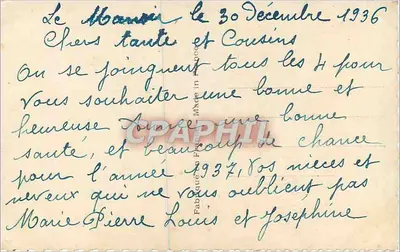 Le Manoir le 30 Décembre 1936
Chers tante et Cousins
On se joinquent tous les 4 pour
vous souhaiter une bonne et
heureuse année une bonne
santé, et beaucoup de chance
pour l'année 1937, Vos nieces et
neveux qui ne vous oublient pas
Marie Pierre Louis et Joséphine
CPAPHIL
Made in